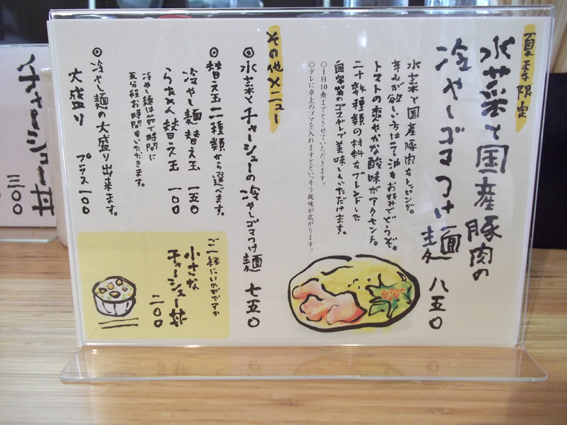 夏季限定
水菜と国産豚肉の
冷やしゴマつけ麺 八五〇
水菜と国産豚肉をトッピング。
辛みが欲しい方はラー油をお好みでどうぞ。
トマトの爽やかな酸味がアクセント。
二十数種類の材料をブレンドした
自家製のゴマダレで美味しくいただけます。
◎1日10食までとさせていただきます。
◎タレに卓上のゴマを入れますといっそう風味が広がります。
その他メニュー
◎水菜とチャーシューの冷やしゴマつけ麺 七五〇
◎替え玉 二種類から選べます。
冷やし麺替え玉 一五〇
らぁめん替え玉 一〇〇
冷やし麺は茹で時間に
五分程お時間をいただきます。
◎冷やし麺の大盛り出来ます。
大盛り プラス一〇〇
ご一緒にいかがですか
小さな
チャーシュー丼
二〇〇
チャーシュー丼
三〇〇